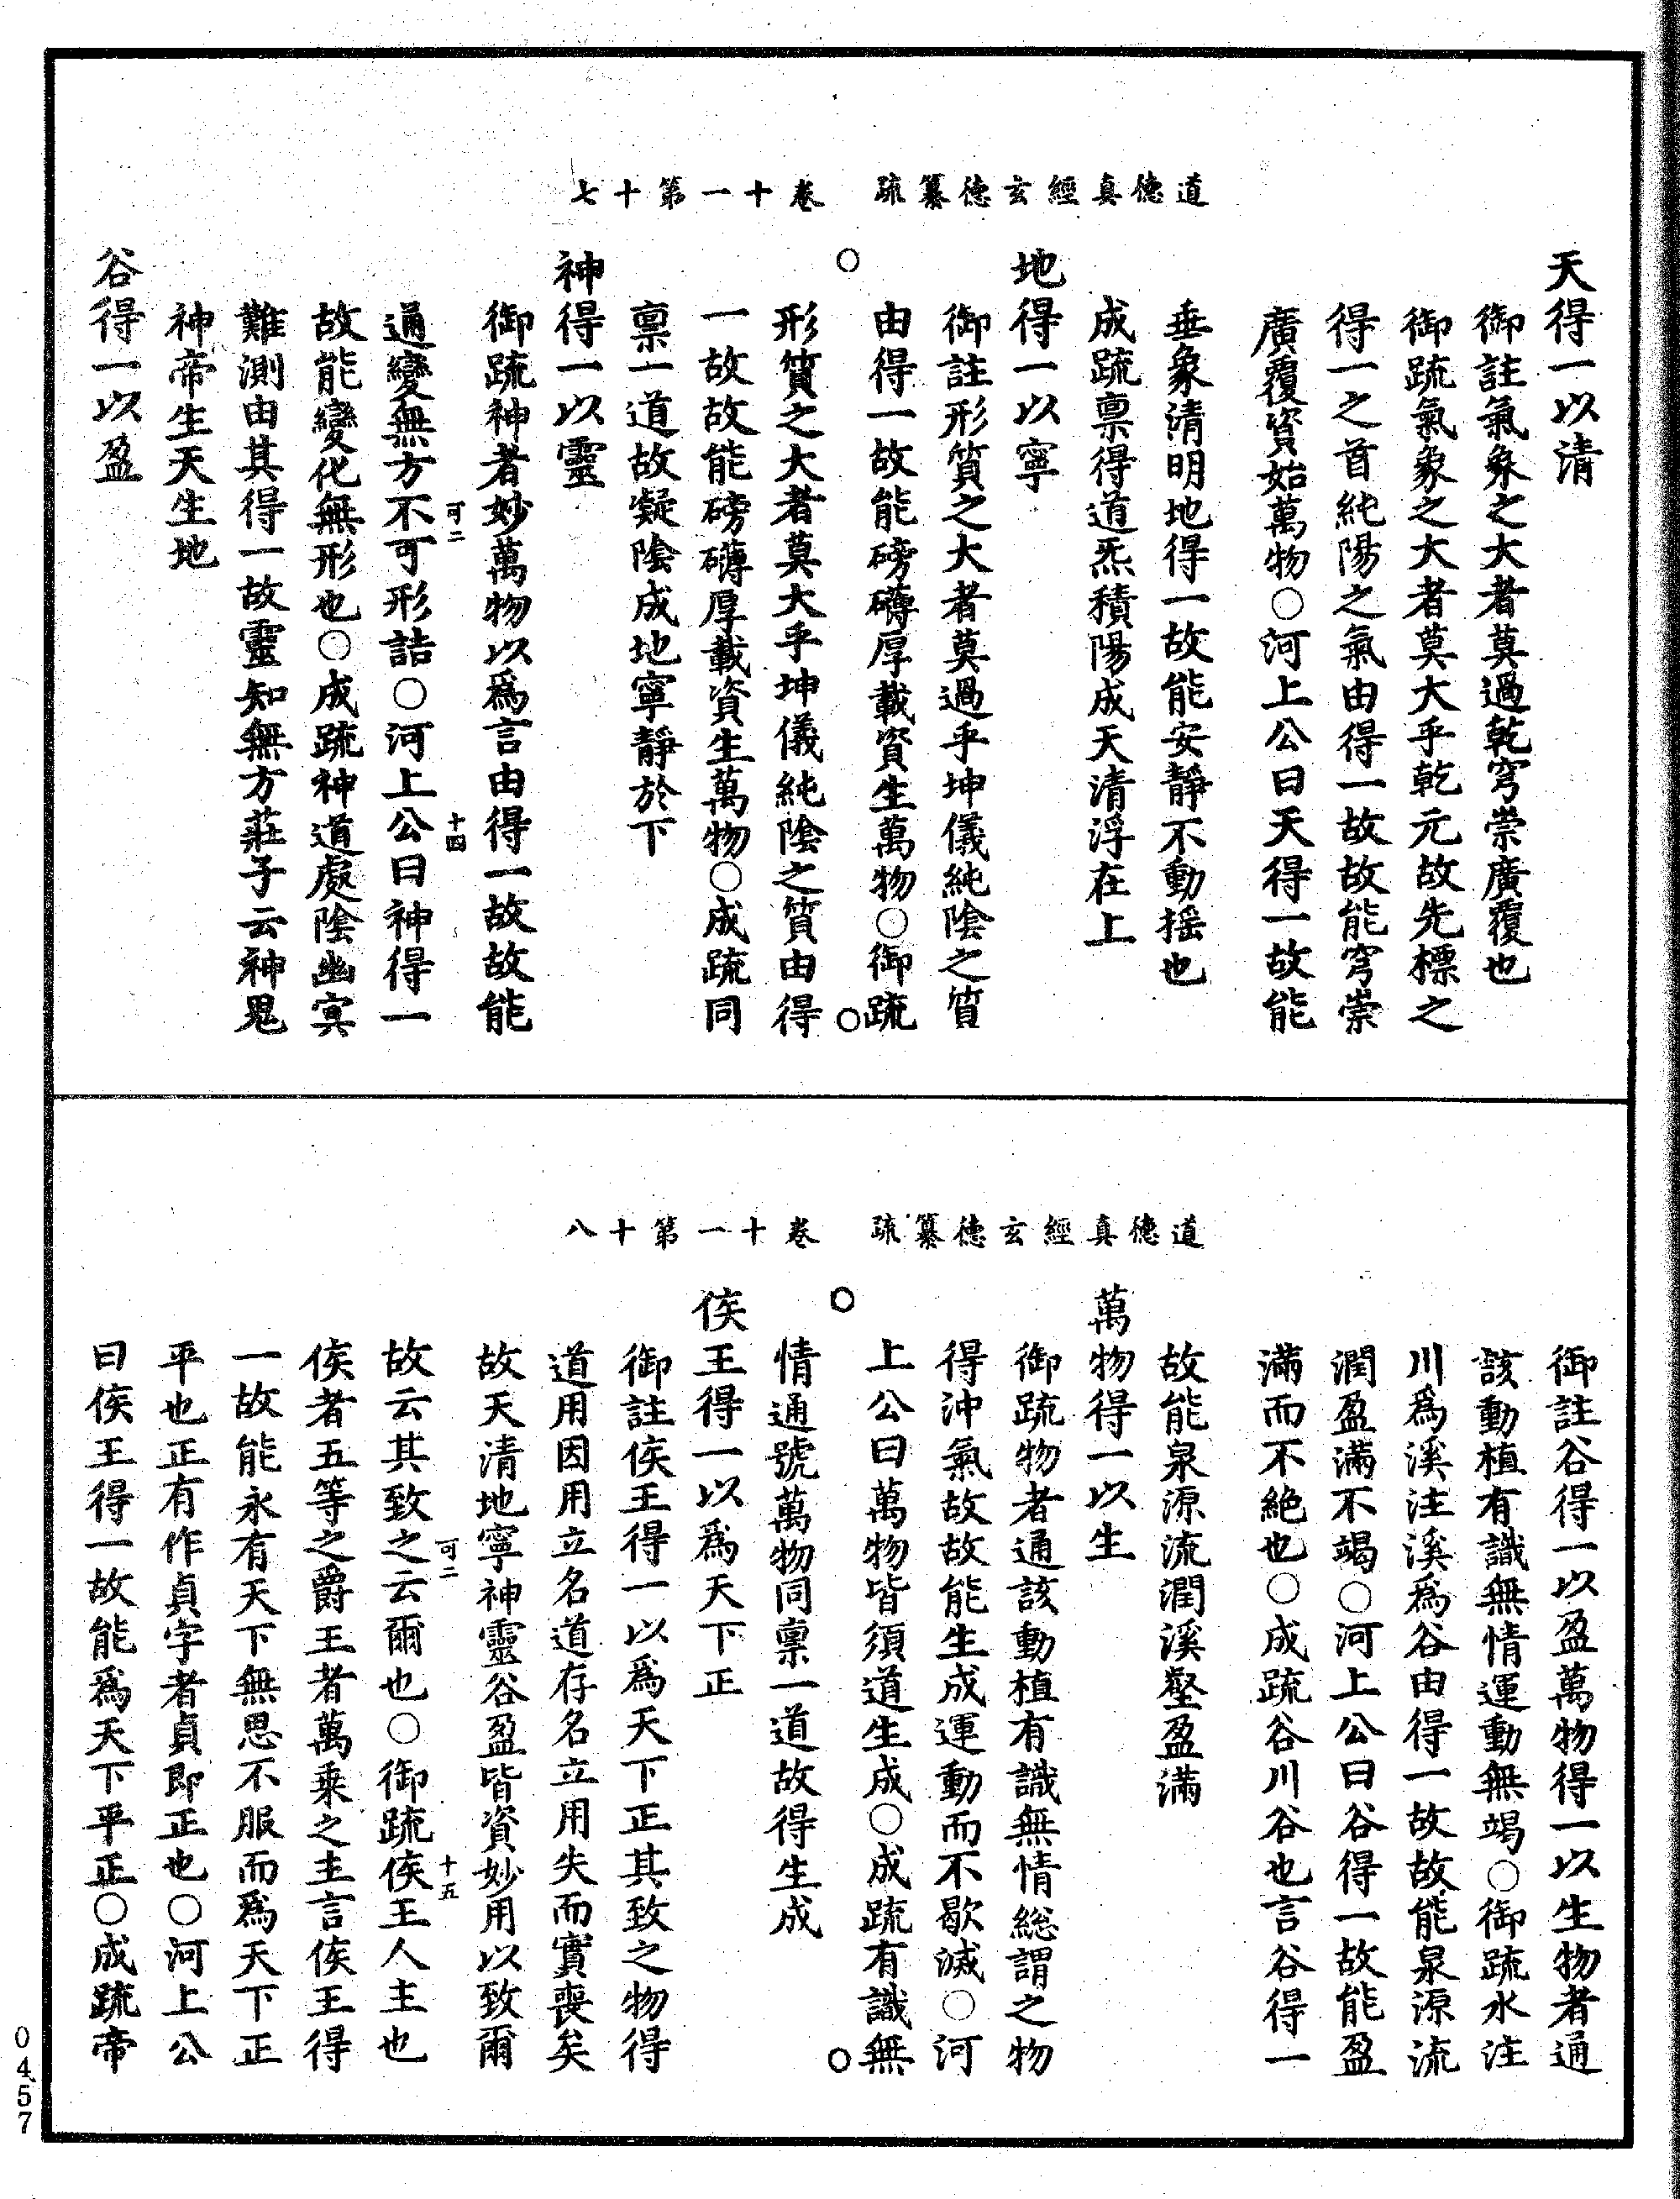 道德真經玄德纂疏　卷十一第十七
天得一以清
御註氣象之大者莫過乾穹崇廣覆也
御䟽氣象之大者莫大乎乾元故先標之
得一之首純陽之氣由得一故故能穹崇
廣覆資始萬物○河上公曰天得一故能
垂象清明地得一故能安靜不動揺也
成䟽禀得道炁積陽成天清浮在上
地得一以寧
御註形質之大者莫過乎坤儀純隂之質
由得一故能磅礴厚載資生萬物○御䟽
形質之大者莫大乎坤儀純隂之質由得
一故故能磅礴厚載資生萬物○成䟽同
禀一道故凝隂成地寧靜於下
神得一以靈
御䟽神者妙萬物以爲言由得一故故能
可二　十四
通變無方不可形詰○河上公曰神得一
故能變化無形也○成䟽神道處隂幽㝠
難測由其得一故靈知無方莊子云神鬼
神帝生天生地
谷得一以盈
道德真經玄德纂疏　卷十一第十八
御註谷得一以盈萬物得一以生物者通
該動植有識無情運動無竭○御䟽水注
川爲溪注溪爲谷由得一故故能泉源流
潤盈滿不竭○河上公曰谷得一故能盈
滿而不絶也○成䟽谷川谷也言谷得一
故能泉源流潤溪壑盈滿
萬物得一以生
御䟽物者通該動植有識無情総謂之物
得沖氣故故能生成運動而不歇滅○河
上公曰萬物皆須道生成○成䟽有識無
情通號萬物同禀一道故得生成
侯王得一以爲天下正
御註侯王得一以爲天下正其致之物得
道用因用立名道存名立用失而實喪矣
故天清地寧神靈谷盈皆資妙用以致爾
可二　十五
故云其致之云爾也○御䟽侯王人主也
侯者五等之爵王者萬乘之主言侯王得
一故能永有天下無思不服而爲天下正
平也正有作貞字者貞即正也○河上公
曰侯王得一故能爲天下平正○成䟽帝
0457